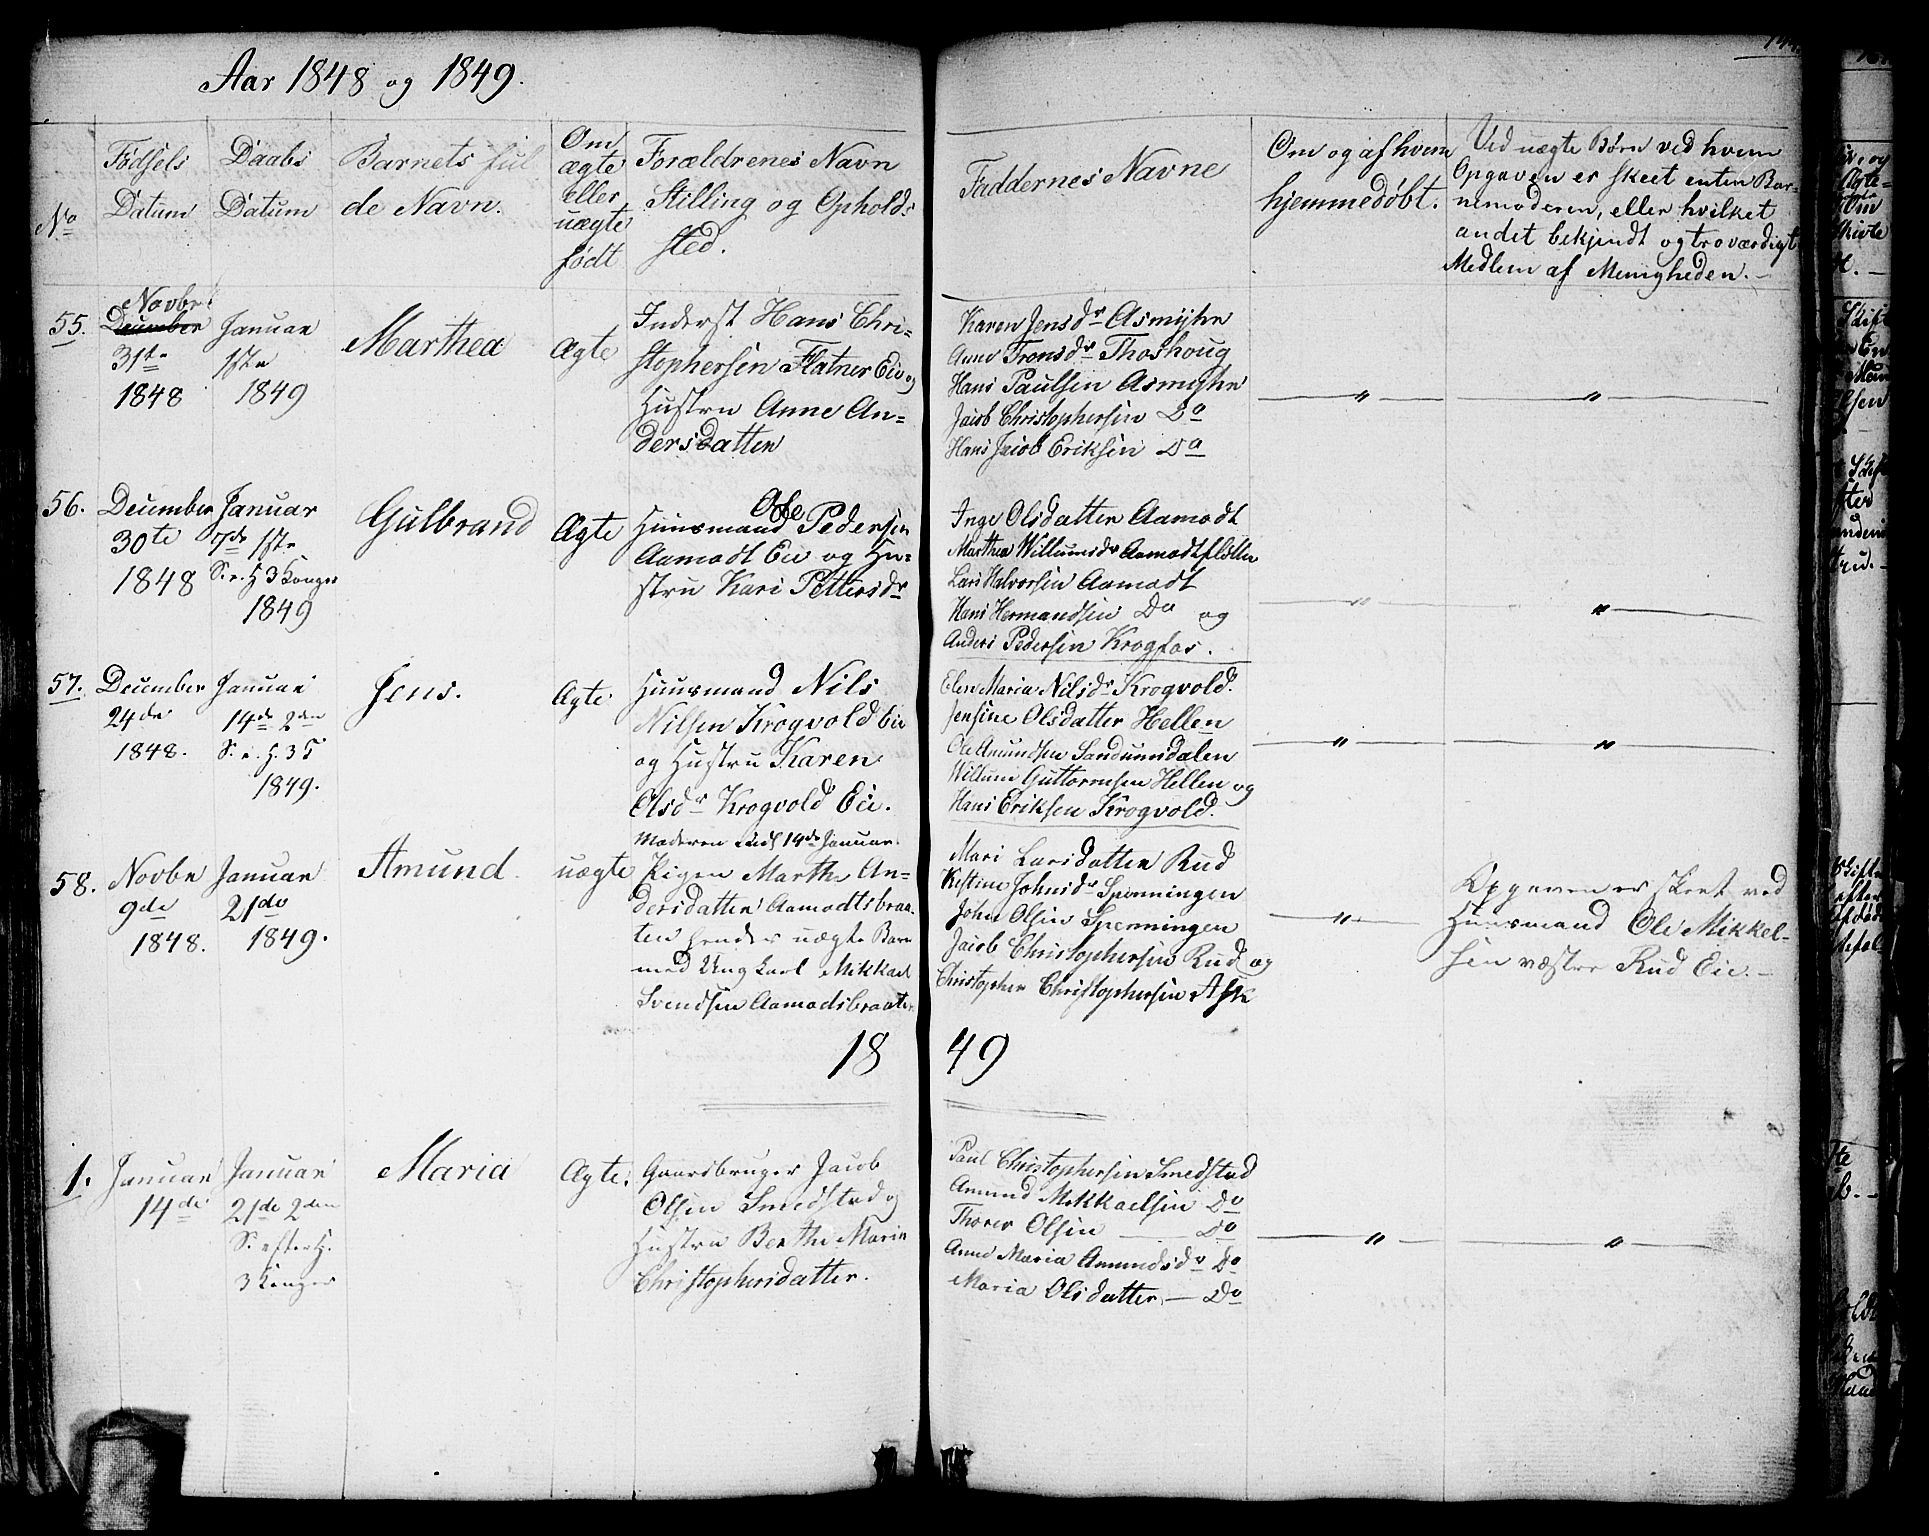 Aar 1848 og 1849.
No
Fødsels
Datum
Daabs
Datum
Barnets ful
de Navn.
Om
ægte
eller
uægte
født
Forældrenes Navn
Stilling og Opholds
sted.
Faddernes Navne
Om og af hvem
hjemmedøbt.
Ved uægte Børn ved hvem
Opgaven er skeet enten Bar-
nemoderen, eller hvilket
andet bekjendt og troværdigt
Medlem af Menigheden. –
55.
Novbr
December
31te
1848
Januar
1ste
1849
Marthea
Ægte
Inderst Hans Chri-
stophersen Flatner Eie og
Hustru Anne An-
dersdatter
Karen Jensdr Asmyhr
Anne Tronsdr Thoshoug
Hans Paulsen Asmyhr
Jacob Christophersen Do
Hans Jacob Eriksen Do
"
"
56.
December
30te
1848
Januar
7de 1ste
S. e. H 3 Konger
1849
Gulbrand
Ægte
Ole
Huusmand Pedersen
Aamodt Eie og Hu-
stru Kari Pettersdr
Inge Olsdatter Aamodt
Marthea Willumsdr Aamodtfletten
Lars Halvorsen Aamodt
Hans Hermandsen Do og
Anders Pedersen Krogfos.
"
"
57.
December
24de
1848.
Januar
14de 2den
S. e. H. 3 K
1849.
Jens.
Ægte
Huusmand Nils
Nilsen Krogvold Eie
og Hustru Karen
Olsdr Krogvold Eie.
Elen Maria Nilsdr Krogvold.
Jensine Olsdatter Hellen
Ole Amundsen Sandunsdalen
Willum Guttormsen Hellen og
Hans Eriksen Krogvold.
"
"
58.
Novbr
9de
1848.
Januar
21de
1849.
Amund.
uægte
Moderen indl 14de Januar
Pigen Marthe An-
dersdatter Aamodtsbraa-
ten hendes uægte Barn
med Ungkarl Mikkael
Svendsen Aamodsbraaten
Mari Larsdatter Rud
Kistine Johnsdr Spenningen
John Olsen Spenningen
Jacob Christophersen Rud og
Christopher Christophersen Ask
"
Opgaven er skeet ved
Huusmand Ole Mikkel-
sen væstre Rud Eie. –
1849
1.
Januar
14de
Januar
21de 2den
S. efter H.
3 Konger
Maria
Ægte.
Gaardbruger Jacob
Olsen Smedstad og
Hustru Berthe Marie
Christophersdatter.
Paul Christophersen Smedstad
Amund Mikkaelsen Do
Thorer Olsen — Do
Anne Maria Amundsdr Do
Maria Olsdatter — Do
"
"